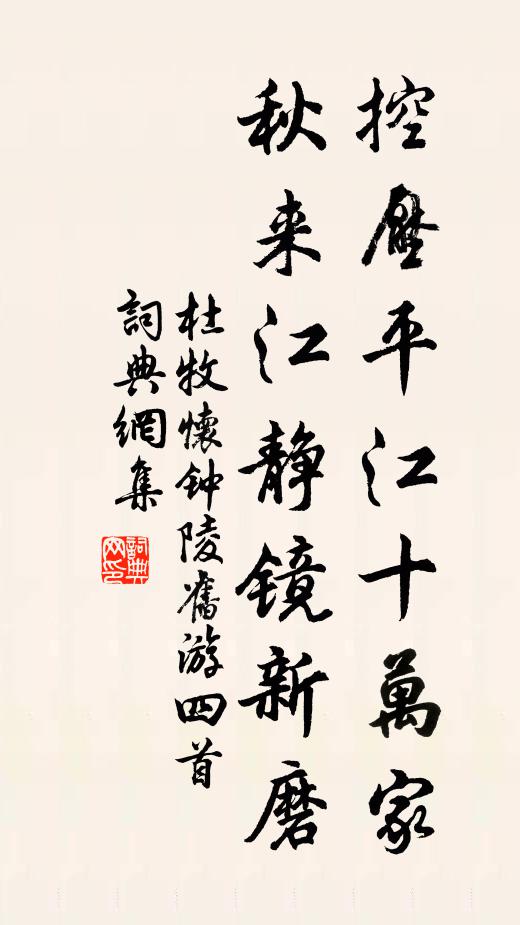 控壓平江十萬家
秋来江静鏡新磨
杜牧懷钟陵舊游四首
詞典網集
詞典网印